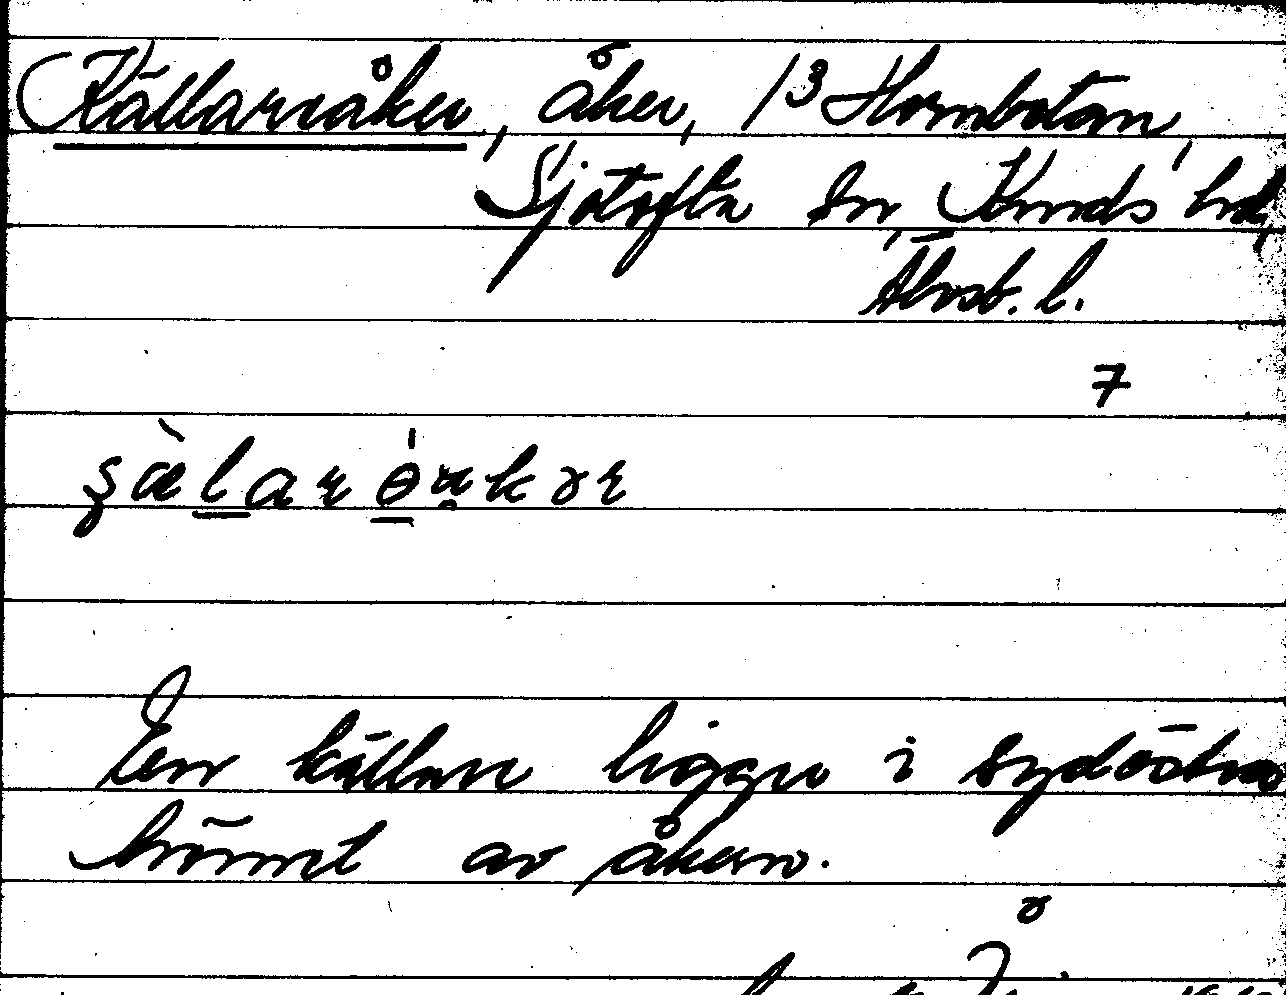 Källaråker, åker, 1/3 Hornbotan,
Sjötofta sn, Kinds hd,
Älvsb. l.
7
En källare ligger i sydöstra
hörnet av åkern.